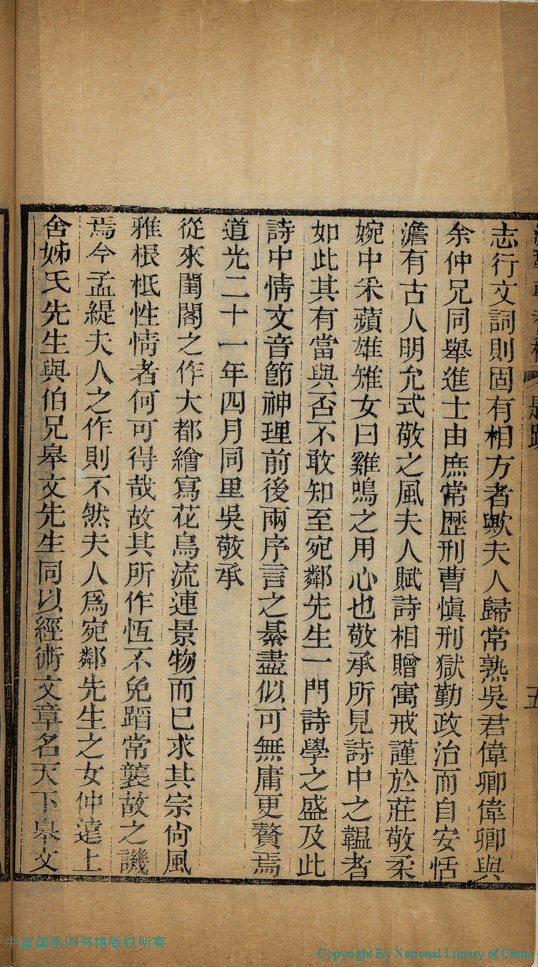 志行文詞則固有相方者歟夫人歸常熟吳君偉卿偉卿與
余仲兄同舉進士由庶常歷刑曹慎刑獄勤政治而自安恬
澹有古人明允式敬之風夫人賦詩相贈寓戒謹於莊敬柔
婉中釆蘋雄雉女曰雞鳴之用心也敬承所見詩中之韞者
如此其有當與否不敢知至宛鄰先生一門詩學之盛及此
詩中情文音節神理前後兩序言之綦盡似可無庸更贅焉
道光二十一年四月同里吳敬承
從來閨閣之作大都繪寫花鳥流連景物而已求其宗尙風
雅根柢性情者何可得哉故其所作恆不免蹈常襲故之譏
焉今孟緹夫人之作則不然夫人爲宛鄰先生之女仲遠上
舍姊氏先生與伯兄皋文先生同以經術文章名天下皋文
五
中国国家图书馆版权所有
Copyright By National Library of China